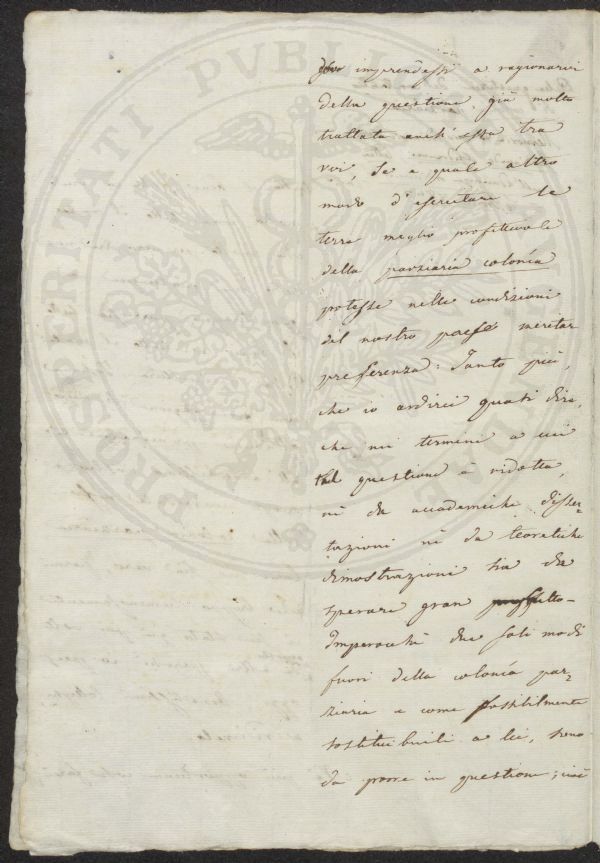 imprendessi a ragionarvi
della questione, già molto
trattata anch' essa tra
voi, se e quale altro
modo d' esercitare le
terra meglio profittevole
della parziaria colonía
potesse nelle condizioni
del nostro paese meritar
preferenza: Tanto più,
che io ardirei quasi dire,
che nei termini a cui
tal questione è ridotta,
nè da accademiche disser=
tazioni nè da teoretiche
dimostrazioni sia da
sperare gran
Imperocchè due soli modi
fuori della colonía par=
ziaria e come possibilmente
sostituibili a lei, sono
da porre in questione; cioè
PROSPERITATI PVBLICAE